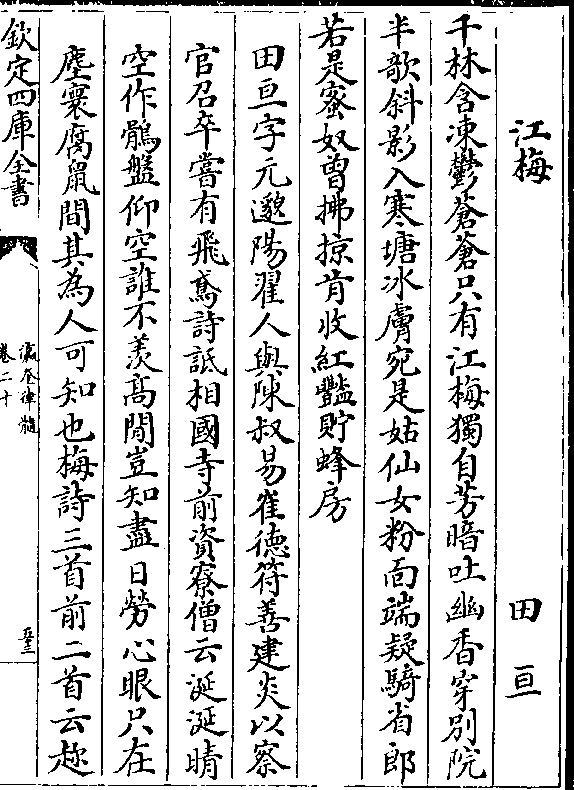 江梅 田亘
千林含凍鬱蒼蒼只有江梅獨自芳暗吐幽香穿別院
半欹斜影入寒塘冰膚宛是姑仙女粉面端疑騎省郎
若是蜜奴曾拂掠肯收紅豔貯蜂房
田亘字元邈陽翟人與陳叔易崔德符善建炎以察
官召卒嘗有飛鳶詩詆相國寺前資寮僧云涎涎晴
空作鶻盤仰空誰不羡髙閒豈知盡日勞心眼只在
塵寰腐鼠間其為人可知也梅詩三首前二首云趂
欽定四庫全書
瀛奎律髓
卷二十
五三